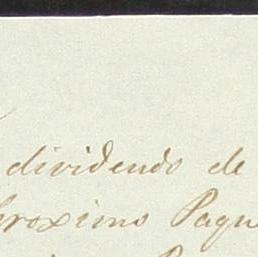 dividendo de
proximo Paque